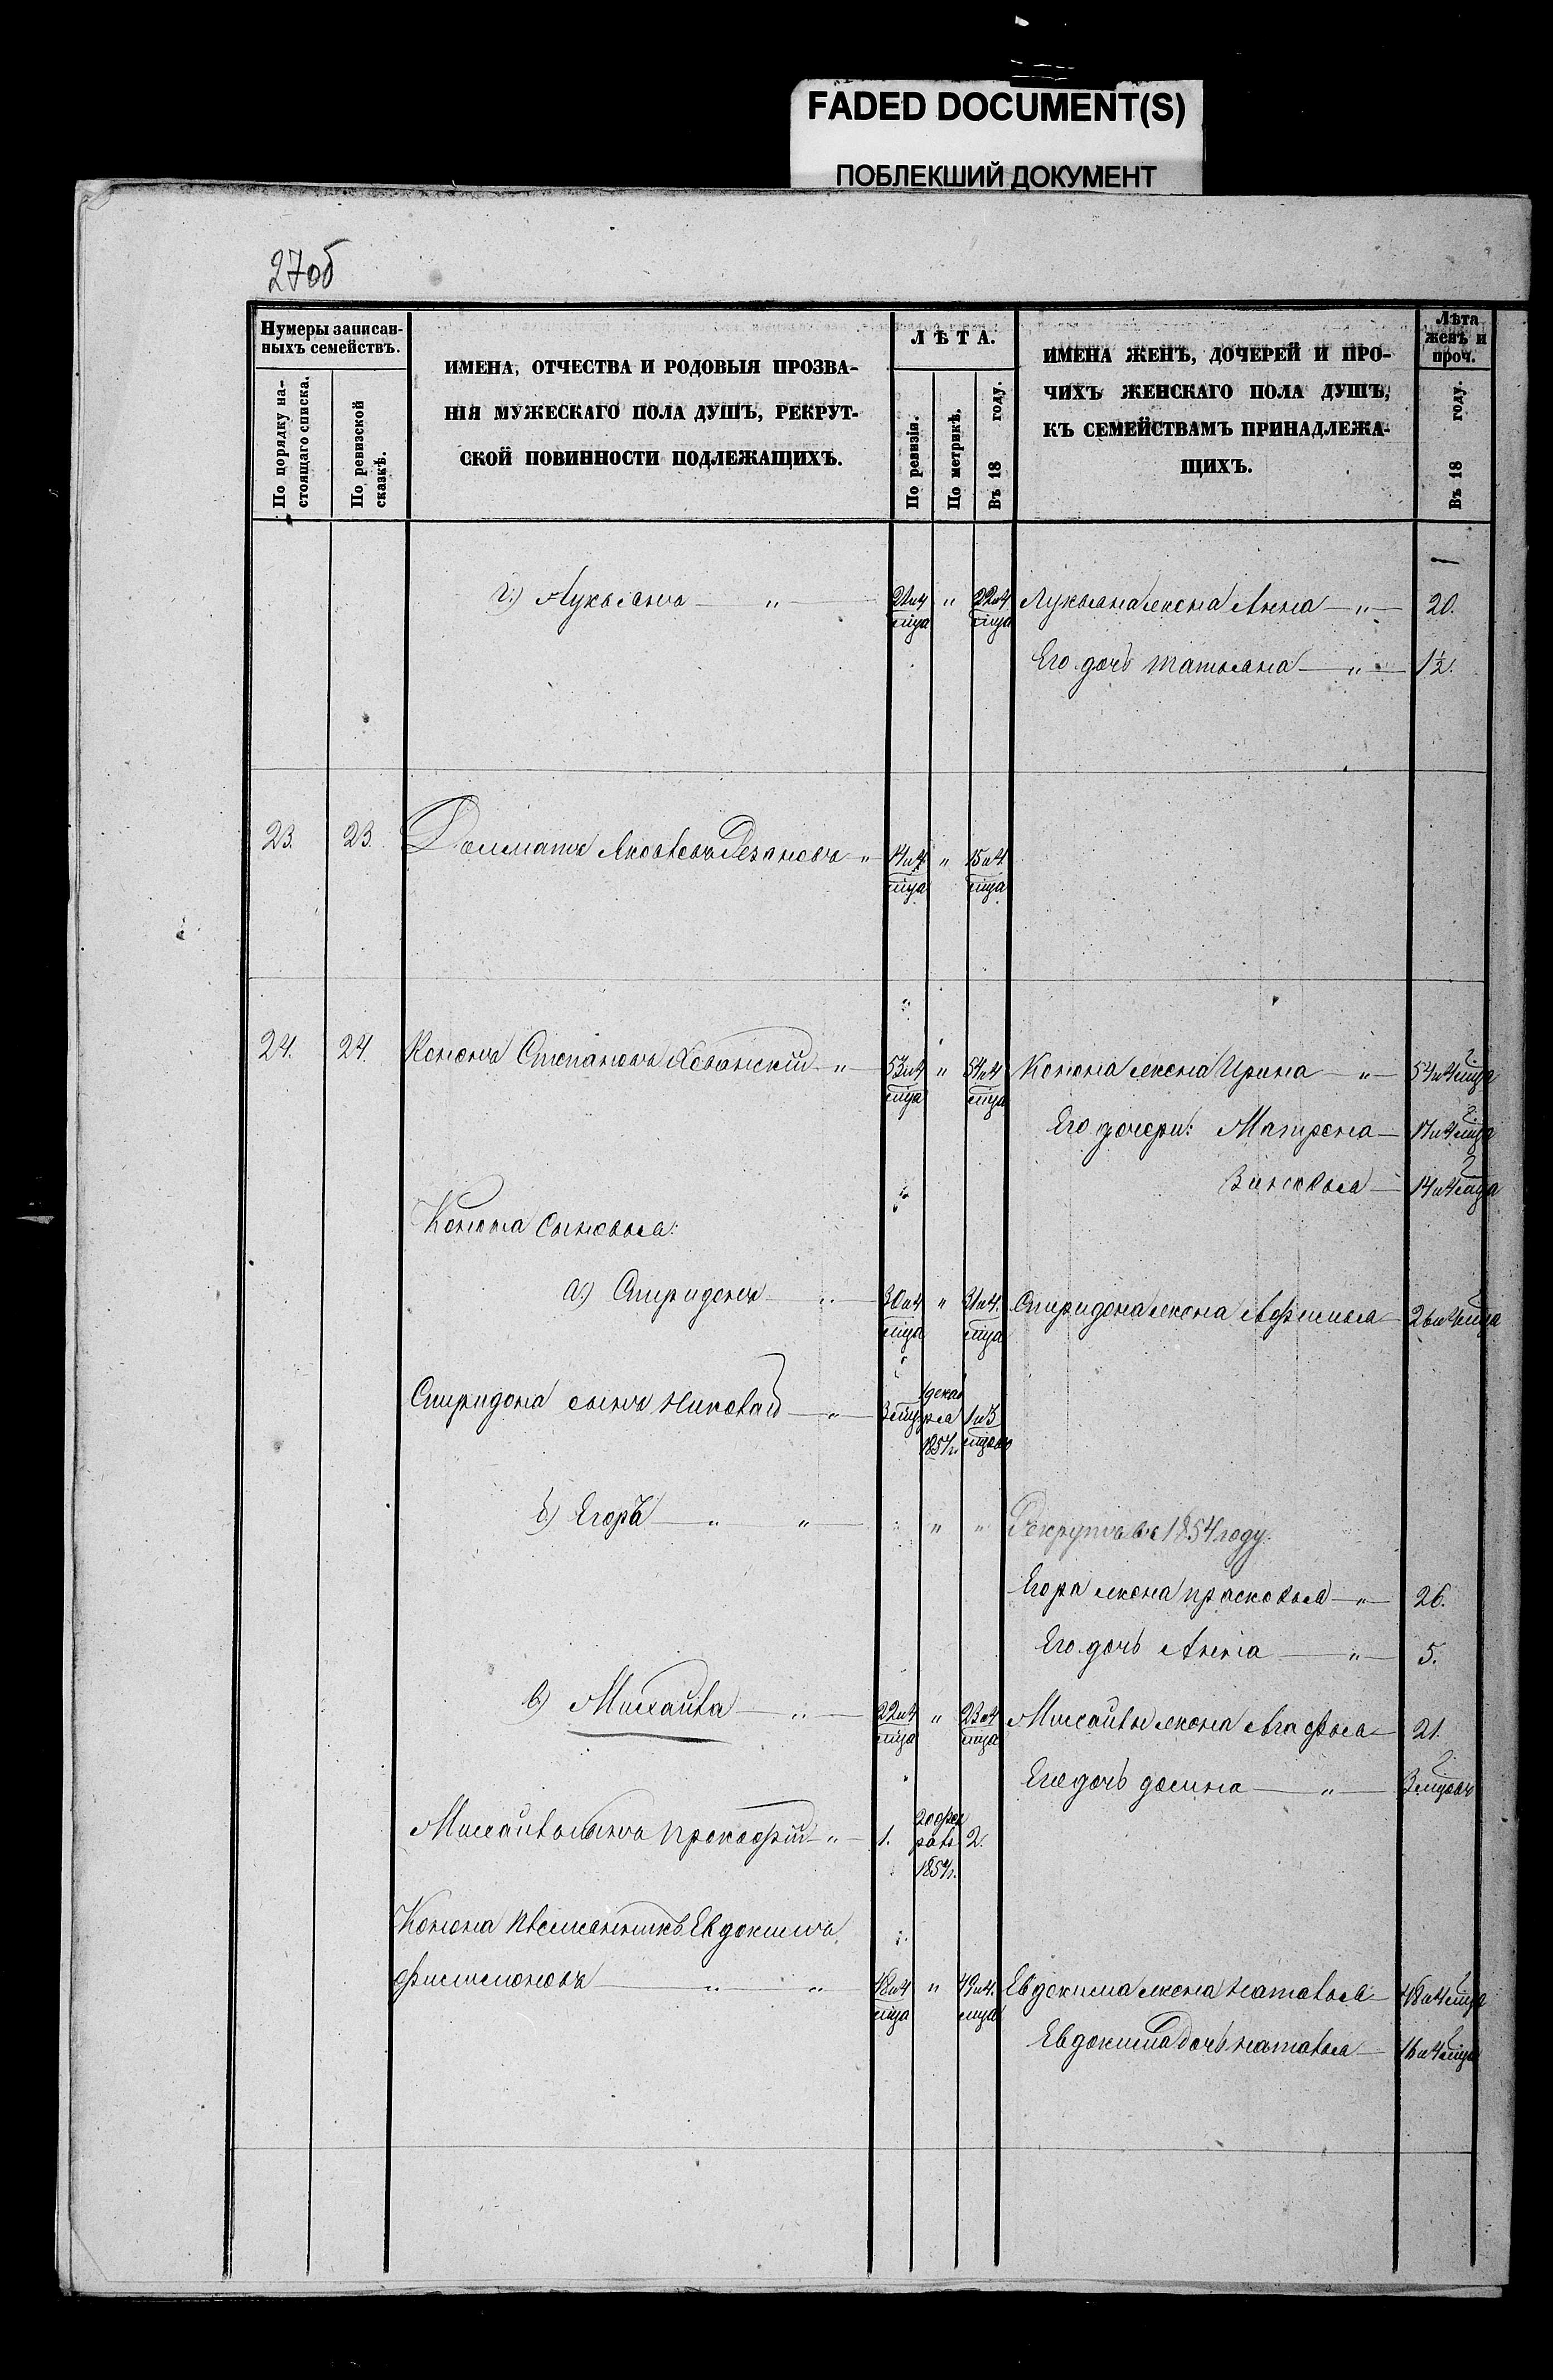 FADED DOCUMENT(S)
ПОБЛЕКШИЙ ДОКУМЕНТ
27об
Нумеры записан-
ныхъ семействъ.
По порядку на-
стоящаго списка.
По ревизской
сказкѣ.
ИМЕНА, ОТЧЕСТВА И РОДОВЫЯ ПРОЗВА-
НІЯ МУЖЕСКАГО ПОЛА ДУШЪ, РЕКРУТ-
СКОЙ ПОВИННОСТИ ПОДЛЕЖАЩИХЪ.
ЛѢТА.
По ревизіи.
По метрикѣ.
Въ 18 году.
ИМЕНА ЖЕНЪ, ДОЧЕРЕЙ И ПРО-
ЧИХЪ ЖЕНСКАГО ПОЛА ДУШЪ,
КЪ СЕМЕЙСТВАМЪ ПРИНАДЛЕЖА-
ЩИХЪ.
Лѣта
женъ и
проч.
Въ 18 году.
г.) Лукьянъ — " — 21 и 4 мца " 22 и 4 мца Лукьяна жена Анна — " — 20.
Его дочь Татьяна — " — 1½.
23. 23. Долматъ Яковлевъ Резановъ " 14 и 4 мца " 15 и 4 мца
24. 24. Кононъ Степановъ Хованскій " 53 и 4 мца " 54 и 4 мца Конона жена Ирина — " — 54 и 4 мца
Его дочери: Матрена — 17 и 4 мца
Зиновья — 14 и 4 мца
Конона сыновья:
а.) Спиридонъ — " — 30 и 4 мца " 31 и 4 мца Спиридона жена Афимья — 26 и 4 мца
Спиридона сынъ Николай — " — 3 мца 1 декабря 1857 г. 1 и 3 мцовъ
б.) Егоръ — " — " — " " " Рекрутъ въ 1854 году.
Егора жена Прасковья — " — 26.
Его дочь Анна — " — 5.
в.) Михайла — " — 22 и 4 мца " 23 и 4 мца Михайлы жена Агафья — 21.
Его дочь Домна — " — 3 мцовъ
Михайлы сынъ Прокофій " 1. 20 февраля 1857 г. 2.
Конона племянникъ Евдокимъ
Филимоновъ — " — " 48 и 4 мца " 49 и 4 мца Евдокима жена Наталья — 48 и 4 мца
Евдокима дочь Наталья — 16 и 4 мца